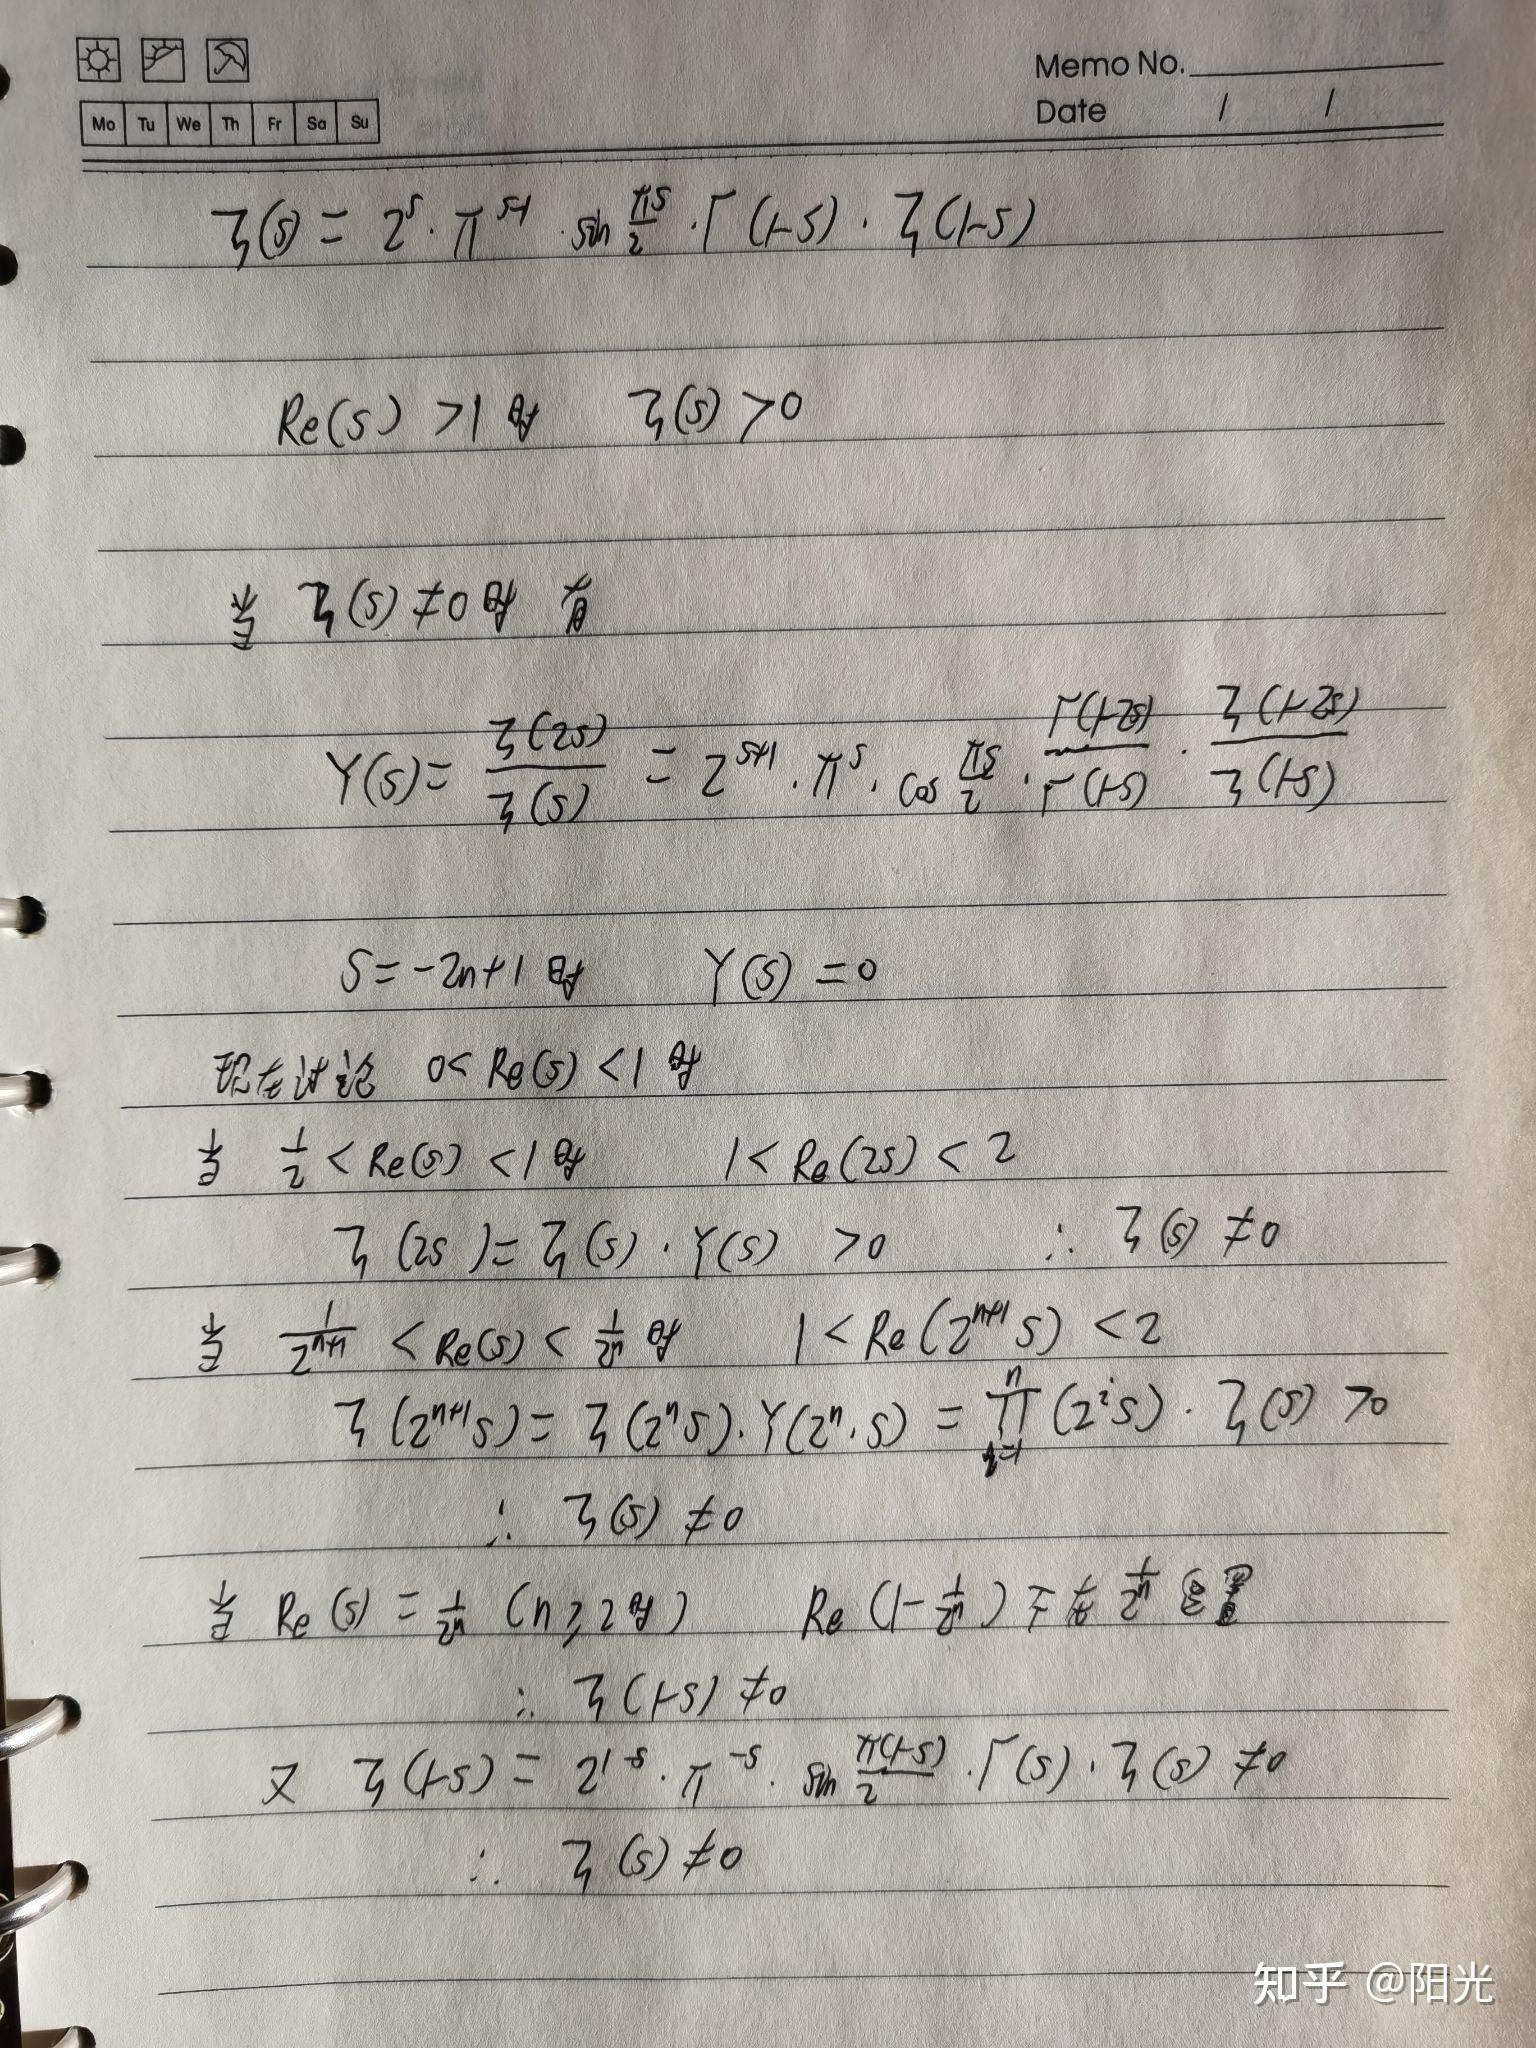 Memo No.
Date / /
Mo Tu We Th Fr Sa Su
ζ(s) = 2^s · π^{s-1} · sin πs/2 · Γ(1-s) · ζ(1-s)
Re(s) >1 时 ζ(s) >0
当 ζ(s) ≠0 时 有
Y(s) = ζ(2s)/ζ(s) = 2^{s+1} · π^s · cos πs/2 · Γ(1-2s)/Γ(1-s) · ζ(1-2s)/ζ(1-s)
S = -2n+1 时 Y(s) = 0
现在讨论 0< Re(s) <1 时
当 1/2 < Re(s) <1 时 1< Re(2s) < 2
ζ(2s) = ζ(s) · Y(s) >0 ∴ ζ(s) ≠0
当 1/2^{n+1} < Re(s) < 1/2^n 时 1 < Re(2^{n+1} s) < 2
ζ(2^{n+1} s) = ζ(2^n s) · Y(2^n · s) = ∏_{i=1}^{n} (2^i s) · ζ(s) >0
∴ ζ(s) ≠0
当 Re(s) = 1/2^n (n≥2时) Re(1-1/2^n) 不在 1/2^n
∴ ζ(1-s) ≠0
又 ζ(1-s) = 2^{1-s} · π^{-s} · sin π(1-s)/2 · Γ(s) · ζ(s) ≠0
∴ ζ(s) ≠0
知乎 @阳光